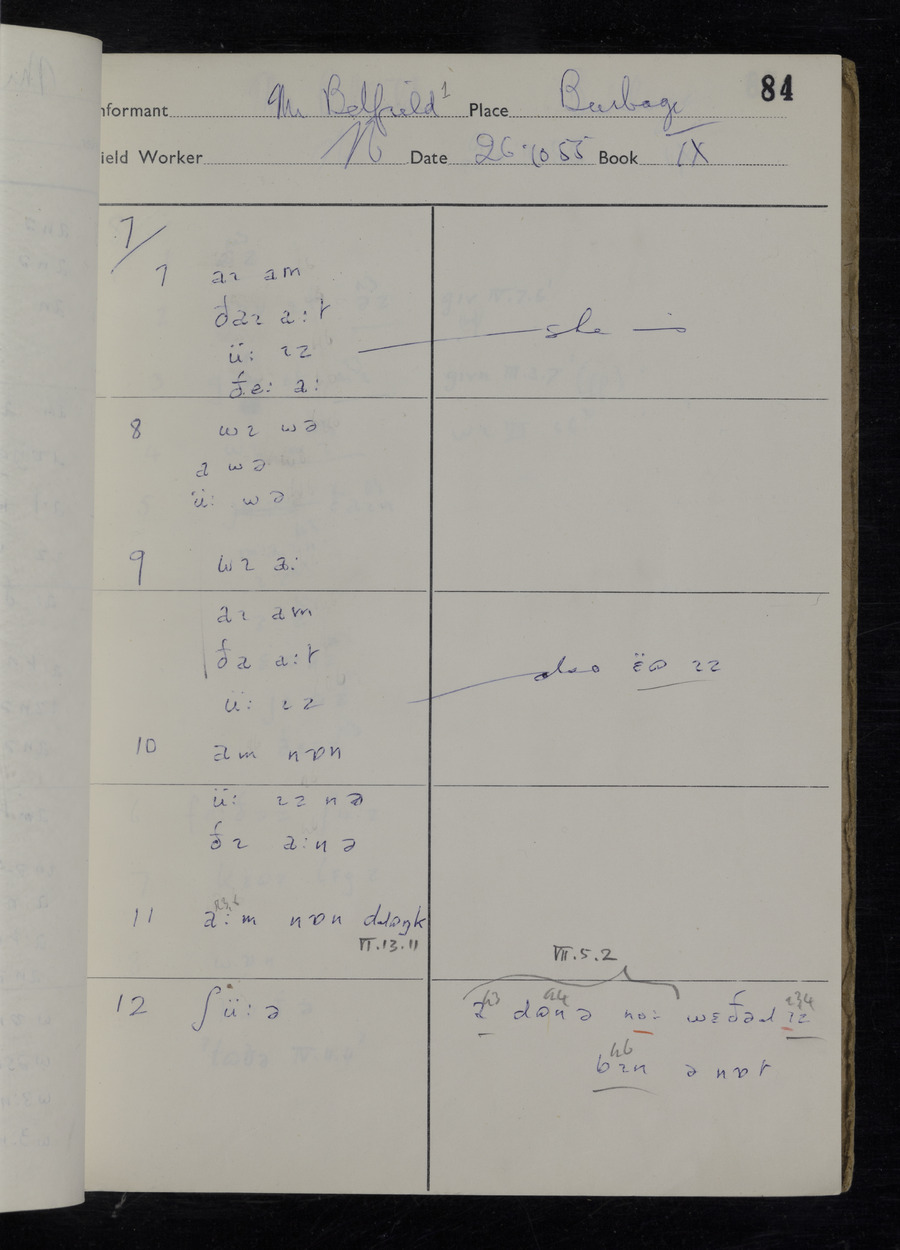 84
nformant Mr Belfield¹ Place Burbage
ield Worker N Date 26.10.55 Book IX
7/
7 aɪ am
ðaɪ aːt
üː ɪz — she —
ðeː aː
8 wɪ wə
a wə
üː wə
9 wɪ aː
aɪ am
ða aːt
üː ɪz — also ɛ̈ə ɪz
10 am nɒn
üː ɪz nə
ðɪ aːnə
11 aːm nɒn dɹəŋk
VII.13.11
12 ʃüːə
VII.5.2
a dəʊnə noː wɛðəɹ ɪz
bɪn ə nɒt